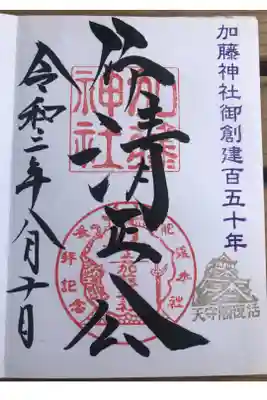 加藤神社御創建百五十年
天守閣復活
仰清正公
加藤
神社
令和二年八月十日